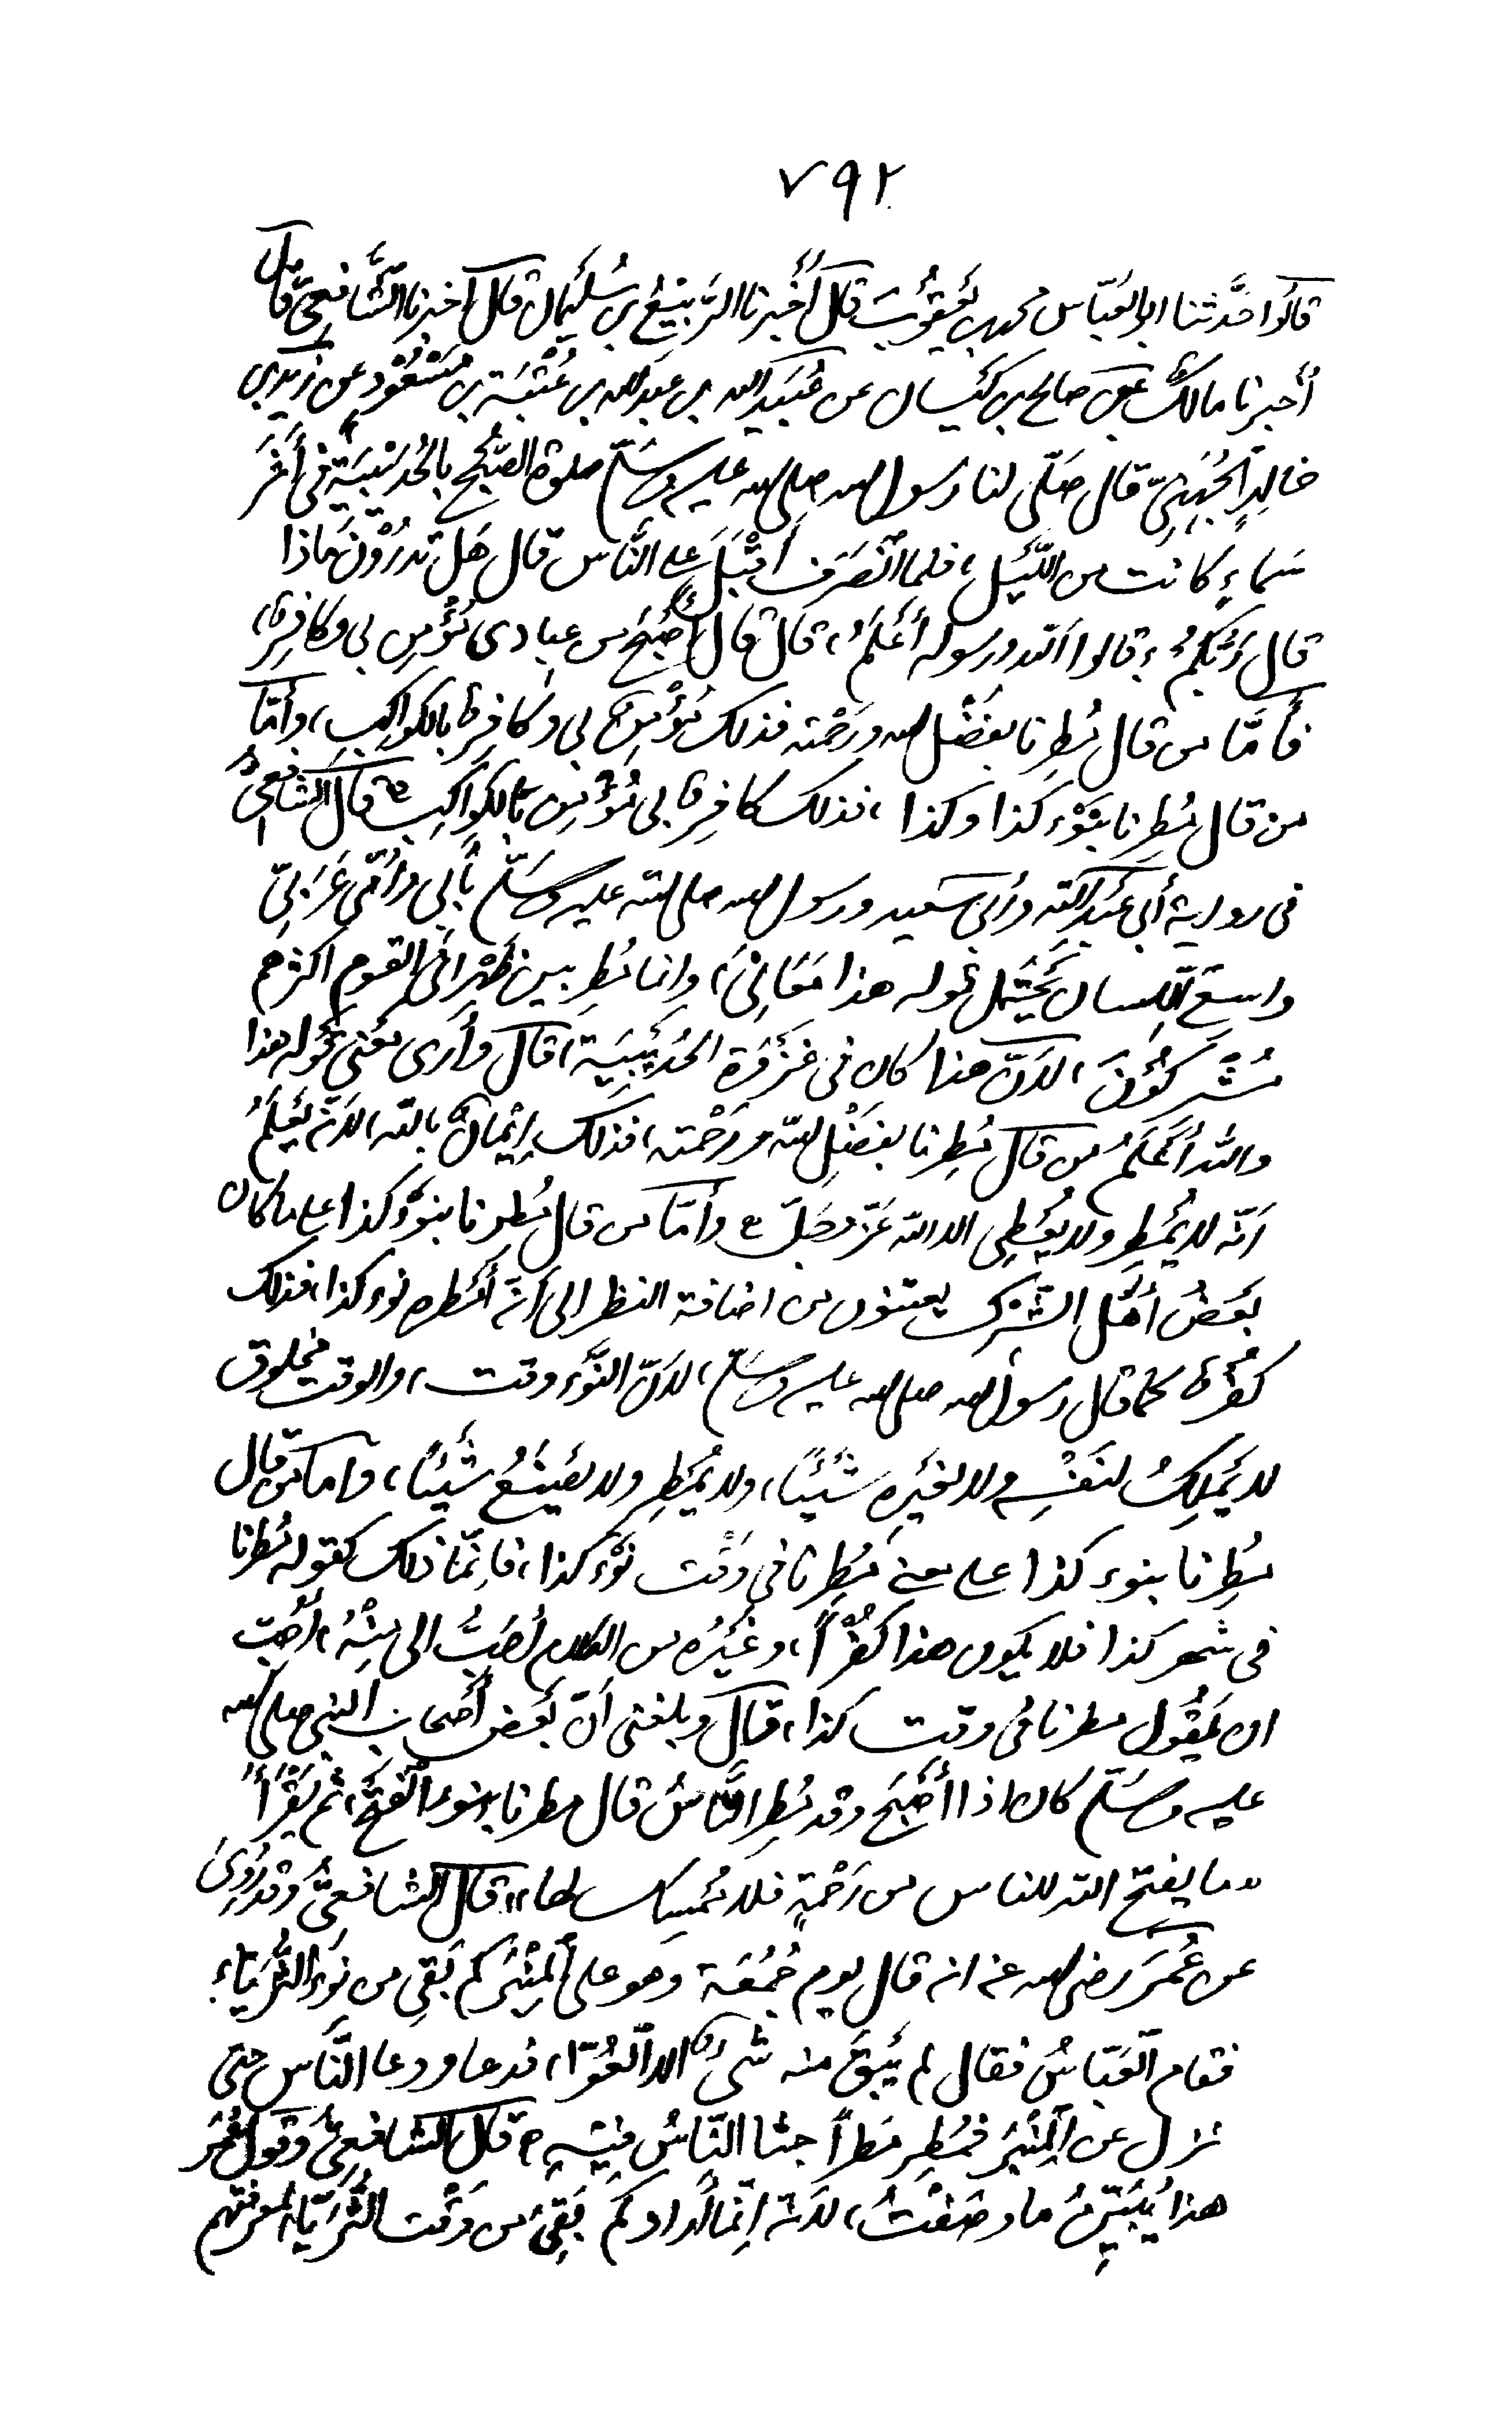 ٧٩٢
قالوا حدَّثنا ابو العبّاس محمد بن يَعْقُوْبَ قال أَخْبرنا الرَّبيْعُ بن سُلَيْمان قال اخبرنا الشَّافِعيّ قال
أخبرنا مالكٌ عن صالح بن كَيْسان عن عُبَيْد الله بن عبدالله بن عُتْبَة بن مَسْعُوْد عن زيد بن
خالِدٍ الجُهَنِيّ قال صَلّى لنا رسول الله صلى الله عليه وسَلّم صلوة الصُّبْح بالحُدَيْبِيَة في أثَرِ
سَماءٍ كانت من اللّيْل، فلما انْصَرَف أقْبَلَ على النّاس قال هَل تدرُوْنَ ماذا
قال رَبُّكم؟ قالوا الله ورسوله أعْلَمُ، قال قال أَصْبَحَ من عبادى مُؤْمِن بي وكافِرٌ،
فأمَّا من قال مُطِرنا بفَضْل الله ورَحْمته فذلك مُؤْمِنٌ بي وكافِرٌ بالكواكِبِ، وأمّا
من قال مُطِرنا بِنَوْء كذا وكذا، فذلك كافِرٌ بي مُؤْمِن بالكواكِب ۞ قال الشافعيُّ
في رواية أبي عَبْدالله وأبي سَعيد ورسول الله صلى الله عليه وسَلّم بأبي وأُمّي عَرَبيّ
واسِعُ اللِّسان يَحْتَمل قوله هذا مَعَانِيَ، وانما مُطِر بين ظَهْرانَيِ القوم اكثرهم
مُشْرِكُوْنَ، لأَنّ هذا كان في غَزْوَة الحُدَيْبِيَة، قال وأُرى معْنى قَوْله هذا
والله أَعْلَمُ من قال مُطِرنا بفَضْلِ الله ورَحْمته، فذلك إيْمانٌ بالله، لأنّه يَعْلَمُ
أنّه لا يُمْطِر ولا يُعْطِى الا الله عَزّ وجَلّ ۞ وأمّا من قال مُطِرنا بنَوْء كذا على ما كان
بَعْضُ أهْل الشّرْك يعنون من اضافة المطر الى أنّه أمْطره نوء كذا، فذلك
كفْرٌ كما قال رسول الله صلى الله عليه وسَلّم، لأنّ النَّوْء وقت، والوقت مخلوق
لا يَمْلِكُ لنَفْسِه ولا لغَيْرِه شَيْئًا، ولا يُمْطِر ولا يَصْنَعُ شَيْئًا، واما من قال
مُطِرنا بنوء كذا على معنى مُطِرنا في وَقْت نَوْء كذا، فإنّما ذلك كقوله مُطرنا
في شهر كذا فلا يكون هذا كُفْرًا، وغَيْرُه من الكلام أحَبُّ الى مِنْهُ، أُحِبّ
ان يَقُوْل مطرنا في وقت كذا، قال وبلغنى أنّ بَعْض أصْحاب النبي صلى الله
عليه وسَلّم كان اذا أَصْبَحَ وقد مُطِر النَّاسُ قال مطرنا بنوء الفَتْح، ثم يَقْرَأُ
«ما يفتح الله للناس من رَحْمةٍ فلا مُمْسِك لها» قال الشافعيُّ وقد رُوِىَ
عن عُمَرَ رضى الله عنه انه قال يوم جُمُعَة وهو على المِنْبَر كم بَقِي من نَوْء الثُّرَيّاء
فقام العَبّاسُ فقال لم يَبْقَ منه شىْءٌ الا العُوّا، فدعا ودعا النّاس حتى
نزل عن المِنْبَر فمُطِر مَطراً حثا النّاسُ منه ۞ قال الشافعيُّ وقَوْل عُمَر
هذا يُبَيِّنُ ما وصَفْتُ، لأنّه انّما أراد كم بَقِيَ من وَقْت الثُّرَيّا، لمعرفتهم